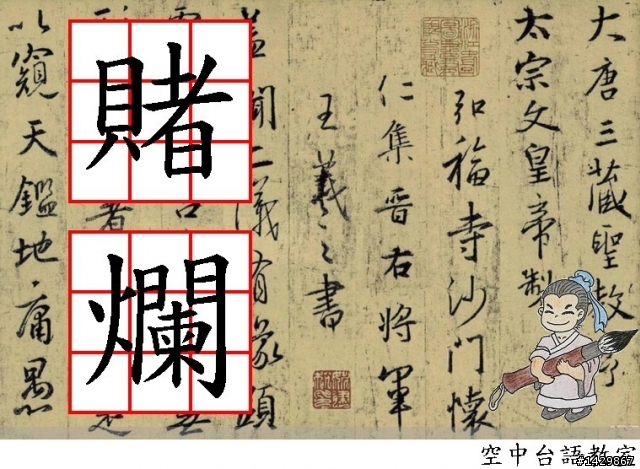 大唐三藏聖教序
太宗文皇帝製
弘福寺沙門懷
仁集晉右將軍
王羲之書
蓋聞二儀有象顯
賭爛
以窺天鑑地庸愚
空中台語教室
#1429867